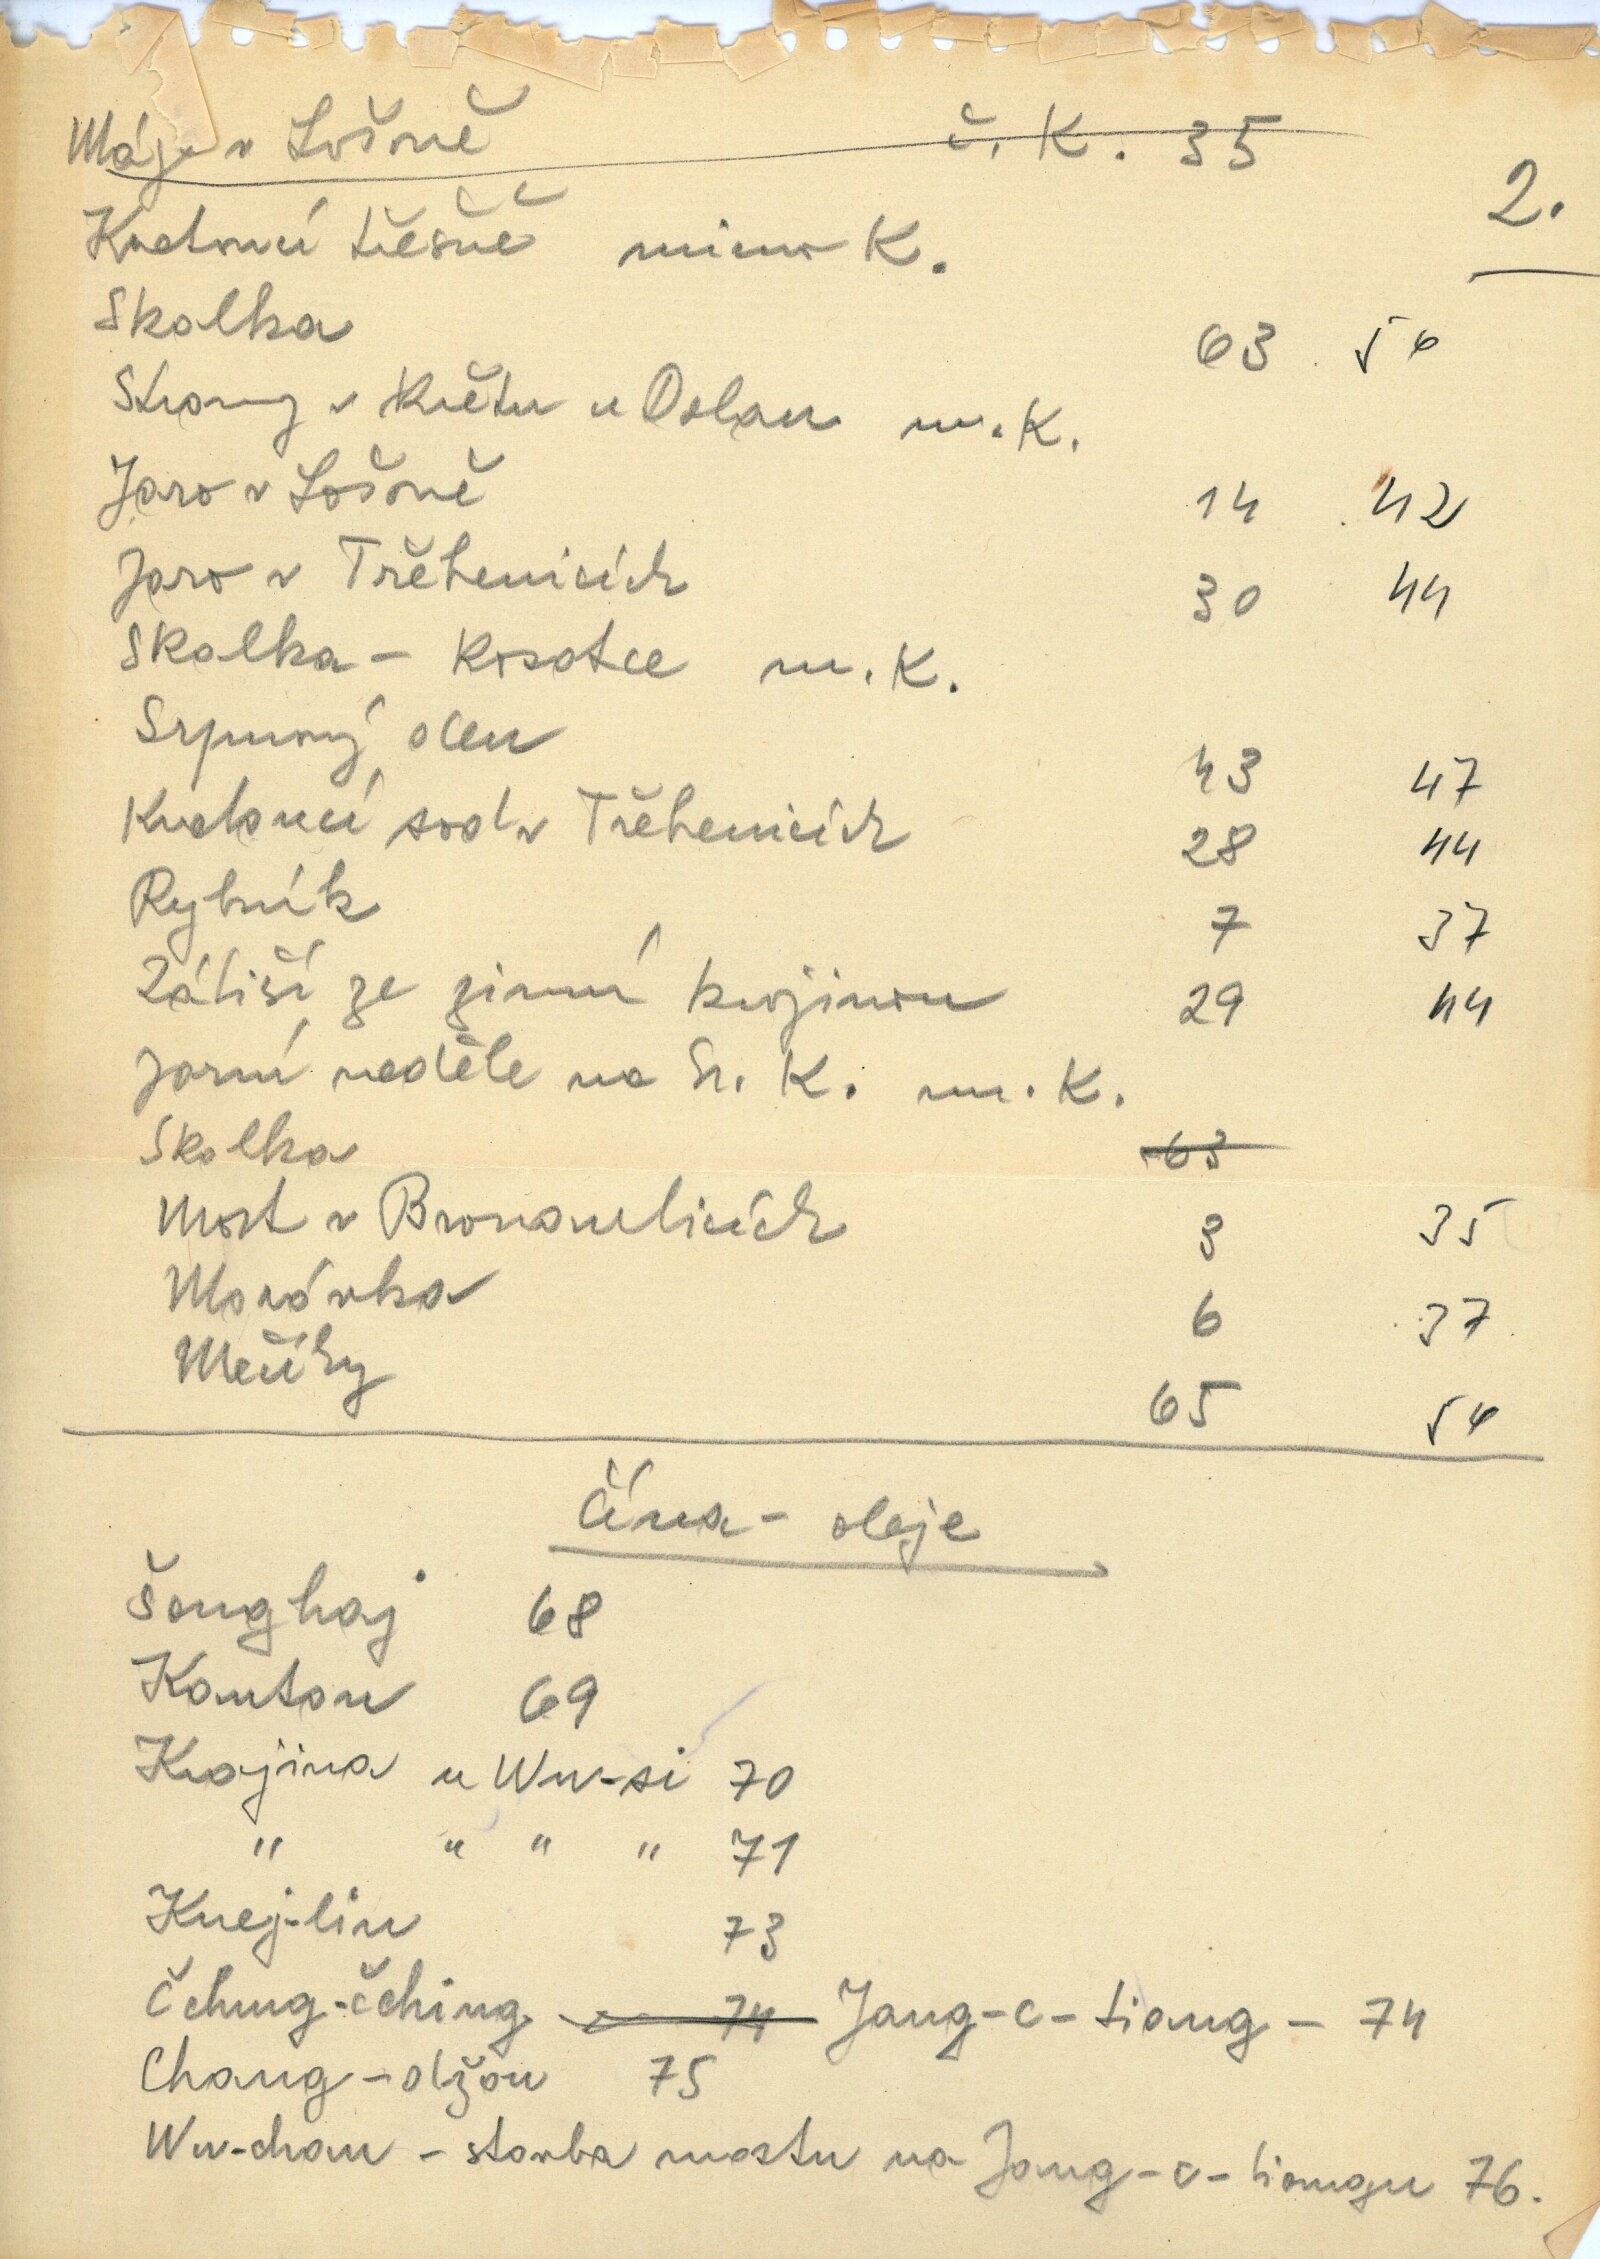 Máj v Lošově č. K. 35
2.
Kvetoucí třešně mimo K.
Skalka 63 54
Stromy v květu u Dolan m. K.
Jaro v Lošově 14 42
Jaro v Třebenicích 30 44
Skalka - Kosatce m. K.
Srpnový den 43 47
Kvetoucí sad v Třebenicích 28 44
Rybník 7 37
Zátiší ze zimní krajinou 29 44
Jarní neděle na Sv. K. m. K.
Skalka 63
Most v Bronovelicích 3 35
Morávka 6 37
Mečíky 65 54
Čína - oleje
Šanghaj 68
Kanton 69
Krajina u Wu-si 70
" " " " 71
Kuej-lin 73
Čchung-čching 74 Jang-c-tiang - 74
Chang-džou 75
Wu-chan - stavba mostu na Jang-c-tiangu 76.